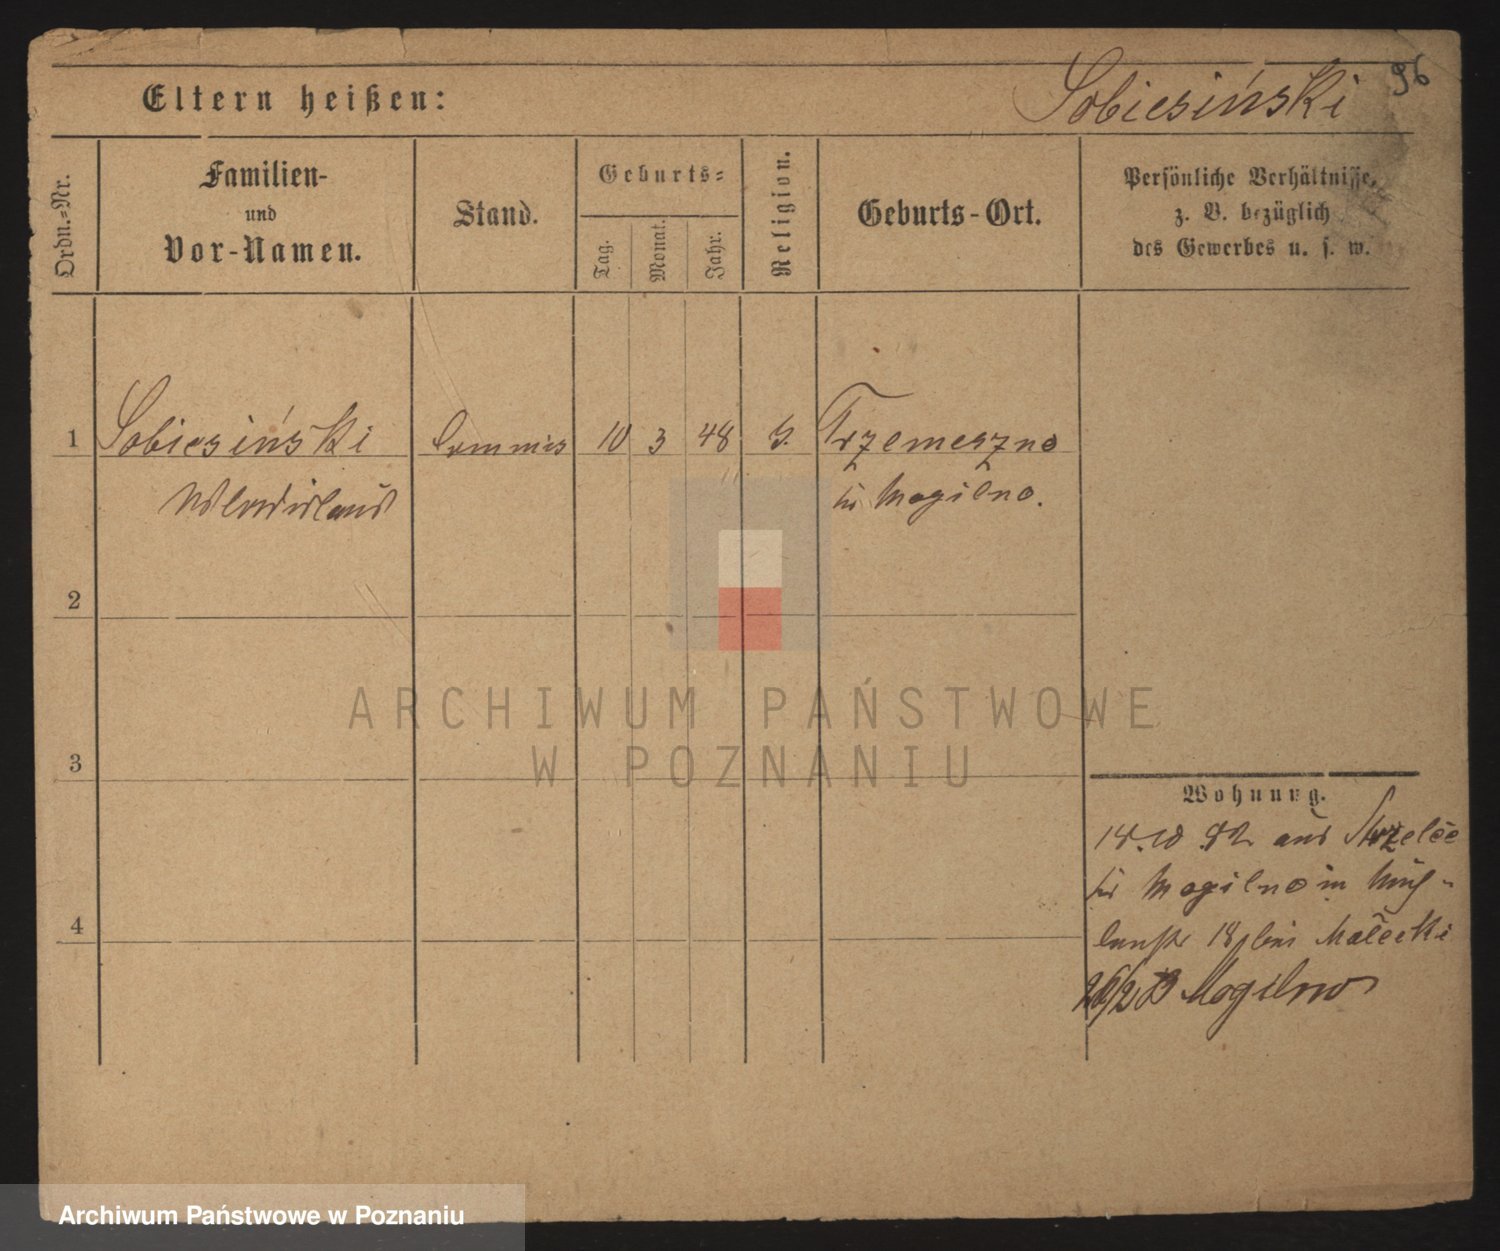 96
Eltern heißen: Sobiesiński
Ordn.=Nr.
Familien-
und
Vor-Namen.
Stand.
Geburts=
Tag.
Monat.
Jahr.
Religion.
Geburts-Ort.
Persönliche Verhältnisse,
z. B. bezüglich
des Gewerbes u. s. w.
1 Sobiesiński Commis 10 3 48 Trzemeszno
Wladislaus Mogilno.
2
3
4
Wohnung.
82 aus Strzelce
Mogilno in
18 bei Malecki
Mogilno
ARCHIWUM PAŃSTWOWE
W POZNANIU
Archiwum Państwowe w Poznaniu